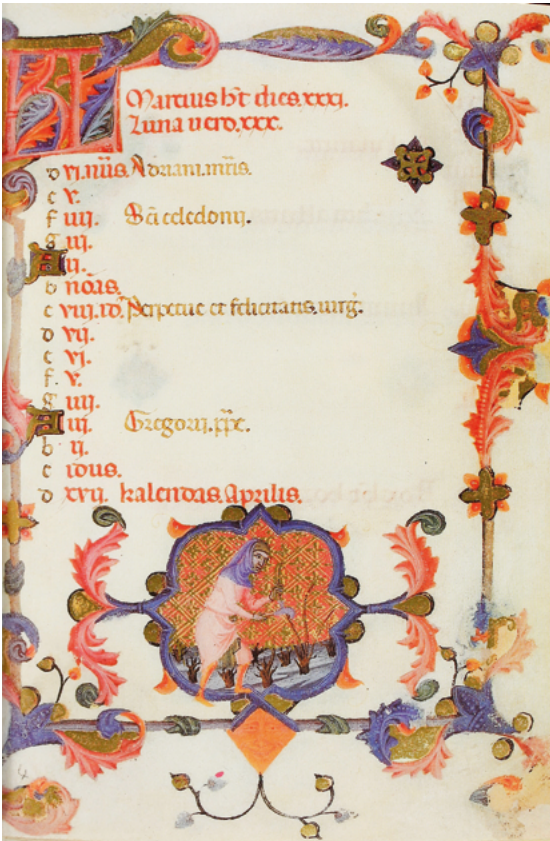 KL
Marcius h̅t dies.xxxi.
Luna uero.xxx.
d vi. nūs. Adriani. mr̅is.
e v.
f iiij. Sc̄i celedonij.
g iij.
A ij.
b nōas.
c viij. id̄. Perpetue et felicitatis. uirg̅.
d vij.
e vj.
f v.
g iiij.
A iij. Gregorij. pp̅e.
b ij.
c idus.
d xvij. kalendas. Aprilis.